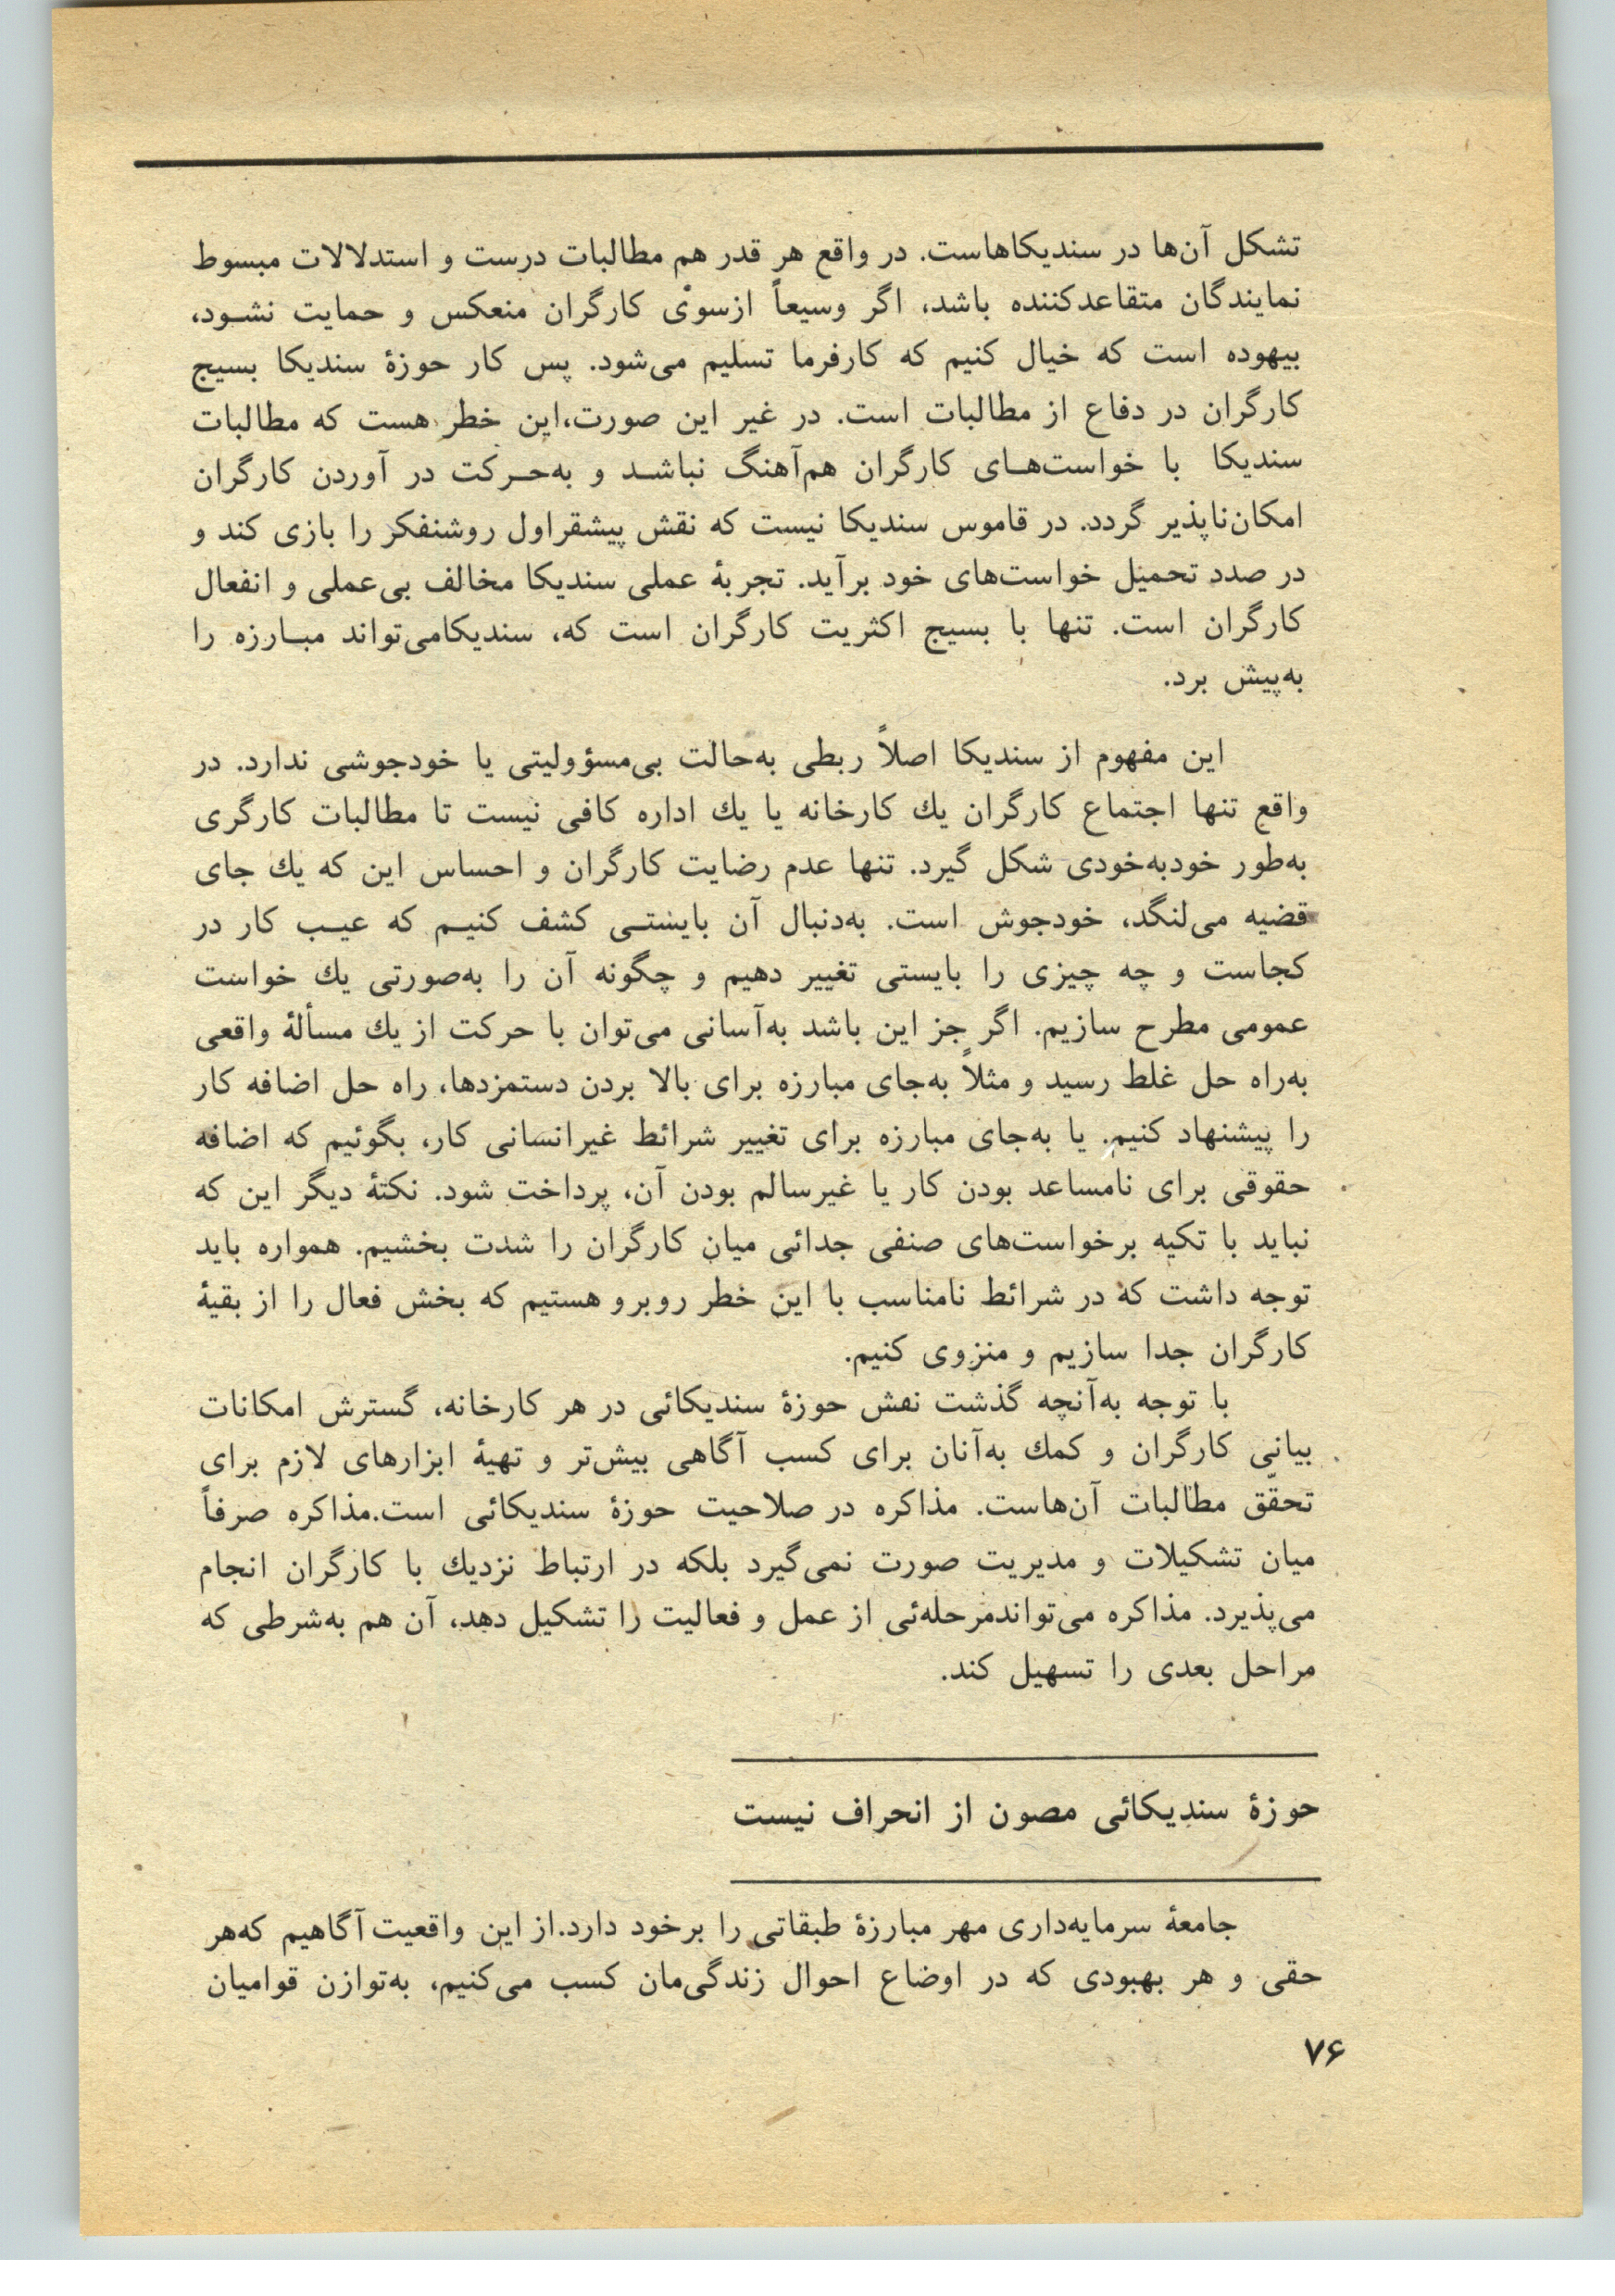 تشکل آن‌ها در سندیکاهاست. در واقع هر قدر هم مطالبات درست و استدلالات مبسوط
نمایندگان متقاعدکننده باشد، اگر وسیعاً ازسوی کارگران منعکس و حمایت نشـود،
بیهوده است که خیال کنیم که کارفرما تسلیم می‌شود. پس کار حوزهٔ سندیکا بسیج
کارگران در دفاع از مطالبات است. در غیر این صورت،این خطر هست که مطالبات
سندیکا با خواست‌هـای کارگران هم‌آهنگ نباشـد و به‌حـرکت در آوردن کارگران
امکان‌ناپذیر گردد. در قاموس سندیکا نیست که نقش پیشقراول روشنفکر را بازی کند و
در صدد تحمیل خواست‌های خود برآید. تجربهٔ عملی سندیکا مخالف بی‌عملی و انفعال
کارگران است. تنها با بسیج اکثریت کارگران است که، سندیکامی‌تواند مبـارزه را
به‌پیش برد.
این مفهوم از سندیکا اصلاً ربطی به‌حالت بی‌مسؤولیتی یا خودجوشی ندارد. در
واقع تنها اجتماع کارگران یك کارخانه یا یك اداره کافی نیست تا مطالبات کارگری
به‌طور خودبه‌خودی شکل گیرد. تنها عدم رضایت کارگران و احساس این که یك جای
قضیه می‌لنگد، خودجوش است. به‌دنبال آن بایستـی کشف کنیـم که عیـب کار در
کجاست و چه چیزی را بایستی تغییر دهیم و چگونه آن را به‌صورتی یك خواست
عمومی مطرح سازیم. اگر جز این باشد به‌آسانی می‌توان با حرکت از یك مسألهٔ واقعی
به‌راه حل غلط رسید و مثلاً به‌جای مبارزه برای بالا بردن دستمزدها، راه حل اضافه کار
را پیشنهاد کنیم. یا به‌جای مبارزه برای تغییر شرائط غیرانسانی کار، بگوئیم که اضافه
حقوقی برای نامساعد بودن کار یا غیرسالم بودن آن، پرداخت شود. نکتهٔ دیگر این که
نباید با تکیه برخواست‌های صنفی جدائی میان کارگران را شدت بخشیم. همواره باید
توجه داشت که در شرائط نامناسب با این خطر روبرو هستیم که بخش فعال را از بقیهٔ
کارگران جدا سازیم و منزوی کنیم.
با توجه به‌آنچه گذشت نقش حوزهٔ سندیکائی در هر کارخانه، گسترش امکانات
بیانی کارگران و کمك به‌آنان برای کسب آگاهی بیش‌تر و تهیهٔ ابزارهای لازم برای
تحقّق مطالبات آن‌هاست. مذاکره در صلاحیت حوزهٔ سندیکائی است.مذاکره صرفاً
میان تشکیلات و مدیریت صورت نمی‌گیرد بلکه در ارتباط نزدیك با کارگران انجام
می‌پذیرد. مذاکره می‌تواندمرحله‌ئی از عمل و فعالیت را تشکیل دهد، آن هم به‌شرطی که
مراحل بعدی را تسهیل کند.
حوزهٔ سندیکائی مصون از انحراف نیست
جامعهٔ سرمایه‌داری مهر مبارزهٔ طبقاتی را برخود دارد.از این واقعیت آگاهیم که‌هر
حقی و هر بهبودی که در اوضاع احوال زندگی‌مان کسب می‌کنیم، به‌توازن قوامیان
۷۶